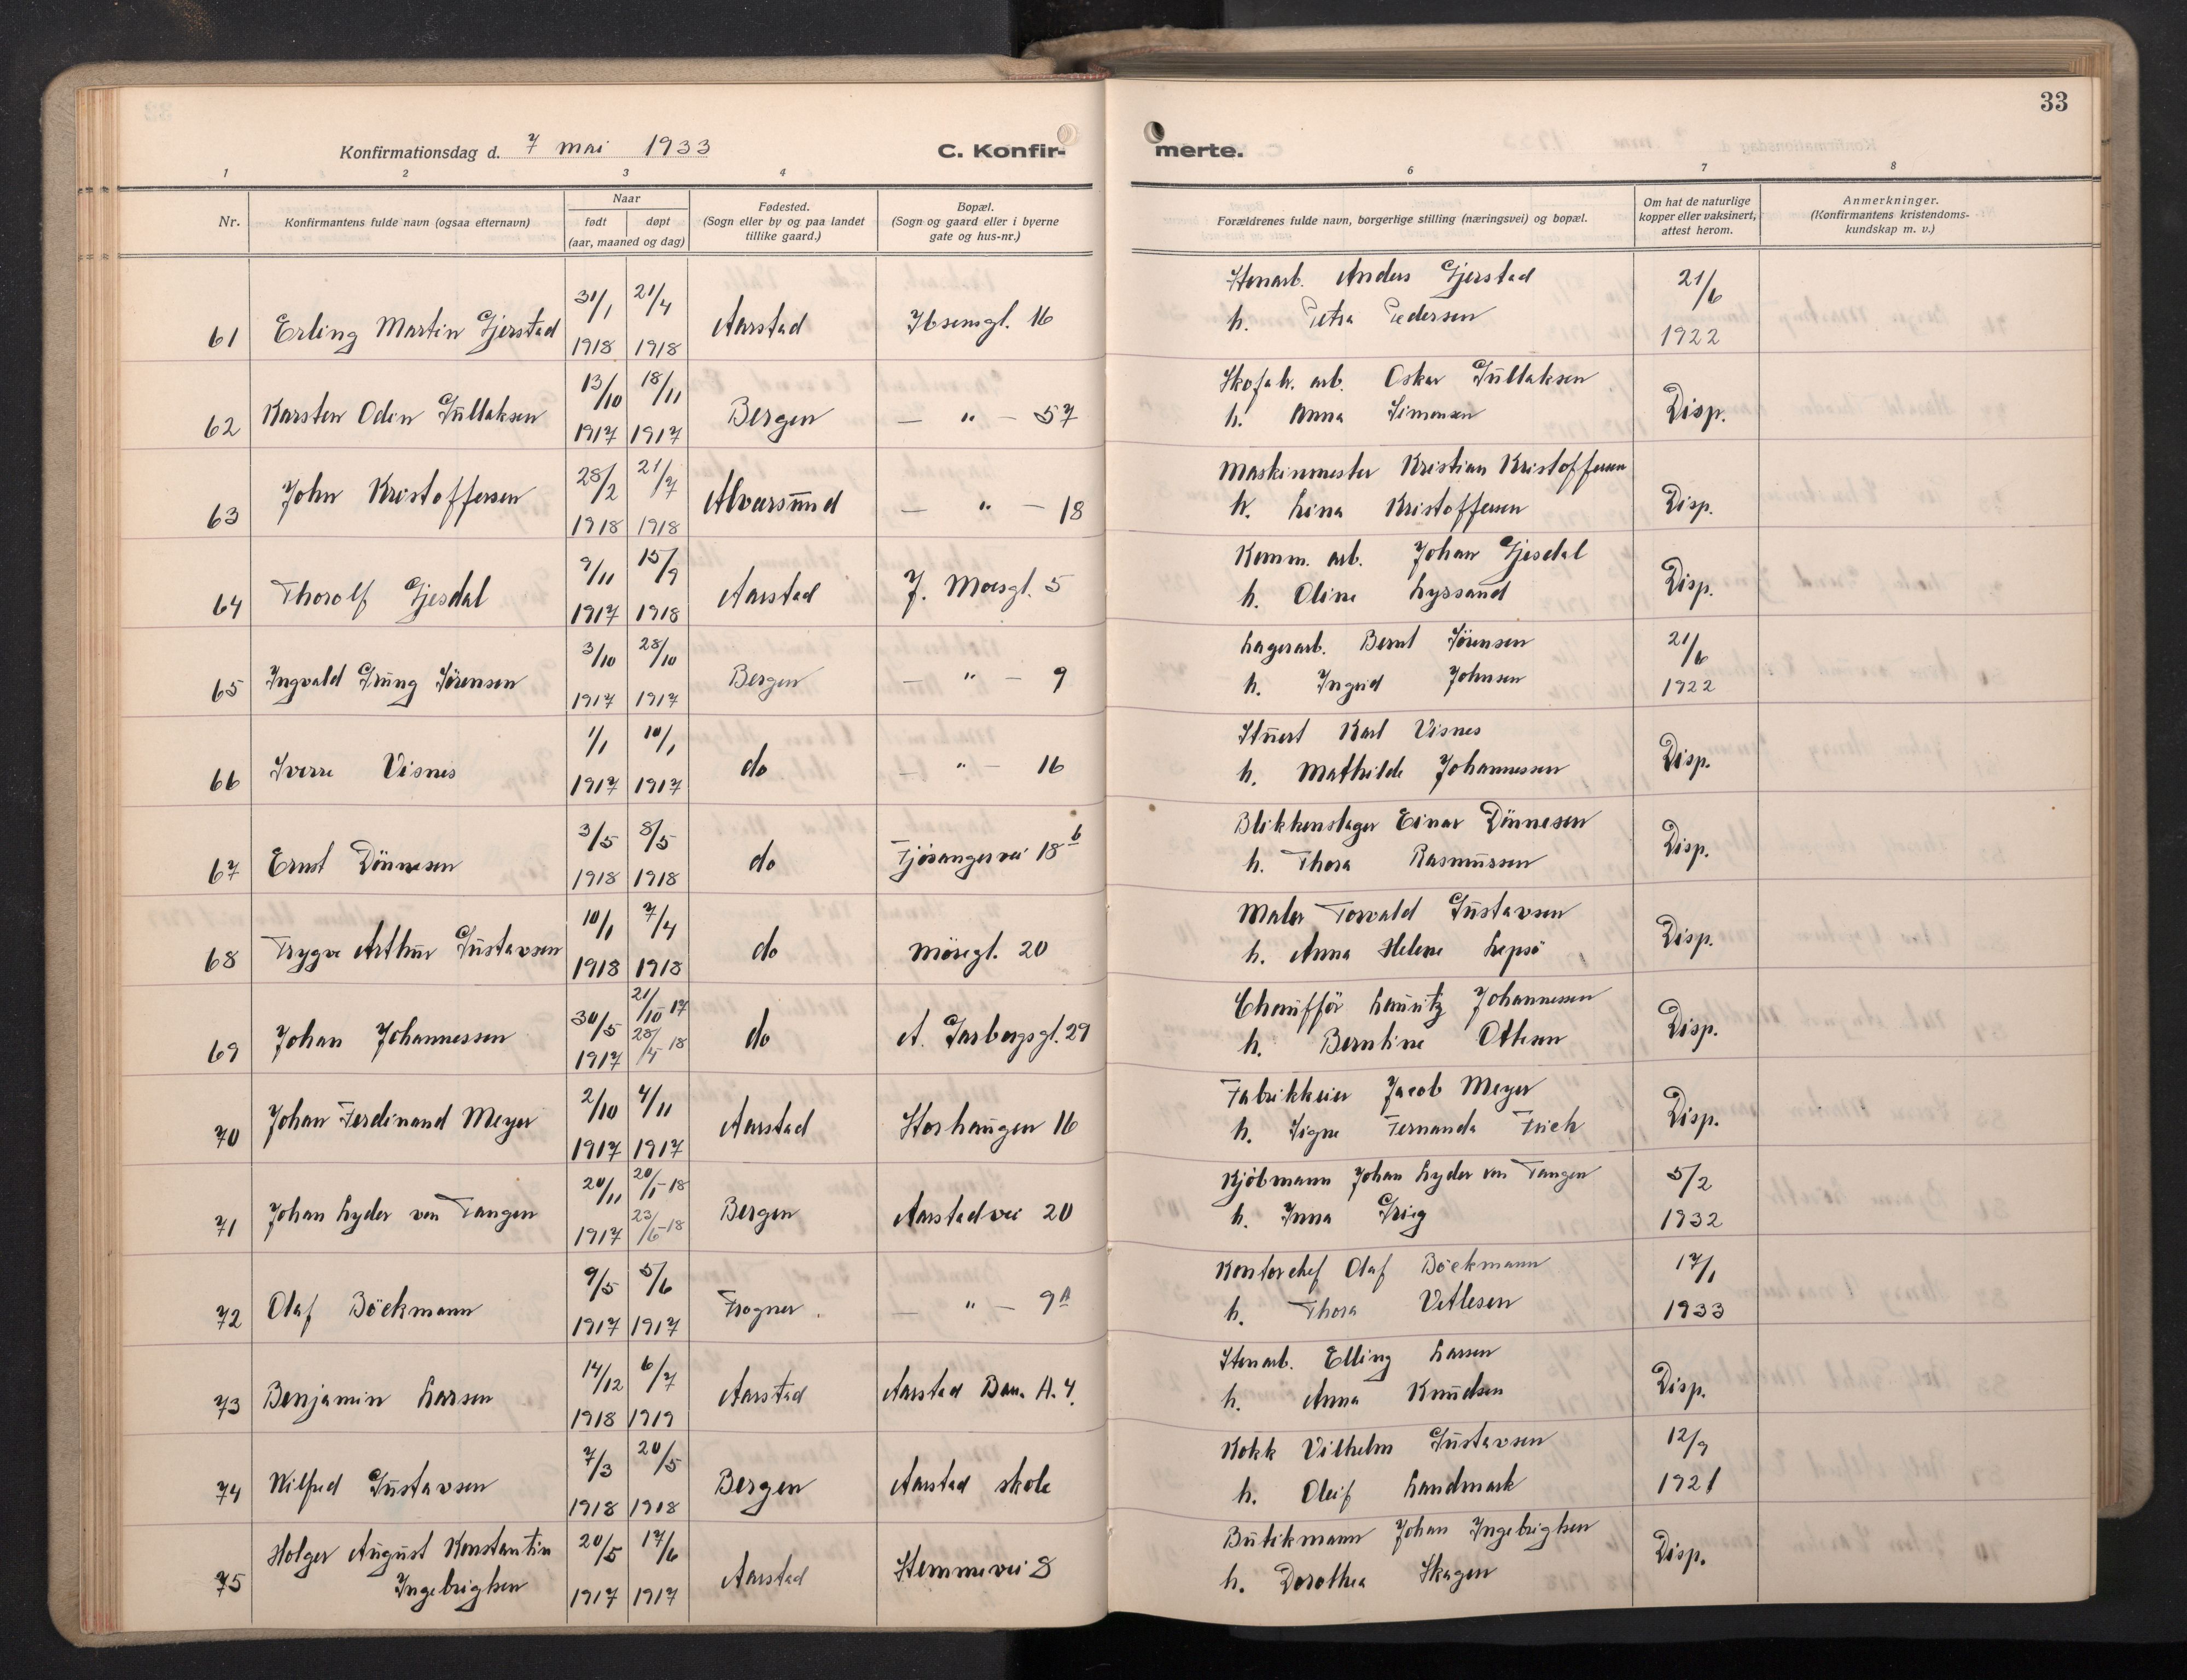 33
Konfirmationsdag d. 7 mai 1933
C. Konfir-
merte.
1 2 3 4 6 7 8
Nr.
Konfirmantens fulde navn (ogsaa efternavn)
Naar
født døpt
(aar, maaned og dag)
Fødested.
(Sogn eller by og paa landet
tillike gaard.)
Bopæl.
(Sogn og gaard eller i byerne
gate og hus-nr.)
Forældrenes fulde navn, borgerlige stilling (næringsvei) og bopæl.
Om hat de naturlige
kopper eller vaksinert,
attest herom.
Anmerkninger.
(Konfirmantens kristendoms-
kundskap m. v.)
31/1 21/4 Stenarb. Anders Gjerstad 21/6
61 Erling Martin Gjerstad Aarstad Ibsensgt. 16 h. Petra Pedersen
1918 1918 1922
13/10 18/11 Skofabr. arb. Oskar Gullaksen
62 Karsten Odin Gullaksen Bergen — " — 57 h. Anna Simonsen Disp.
1917 1917
28/2 21/7 Maskinmester Kristian Kristoffersen
63 John Kristoffersen Alversund — " — 18 h. Lina Kristoffersen Disp.
1918 1918
9/11 15/9 Komm. arb. Johan Gjesdal
64 Thorolf Gjesdal Aarstad J. Moesgt. 5 h. Oline Lyssand Disp.
1917 1918
3/10 28/10 Lagerarb. Bernt Sørensen 21/6
65 Ingvald Grung Sørensen Bergen — " — 9 h. Ingrid Johnsen
1917 1917 1922
1/1 10/1 Stuert Karl Visnes
66 Sverre Visnes do — " — 16 h. Mathilde Johannessen Disp.
1917 1917
3/5 8/5 Blikkenslager Einar Dönnesen
67 Ernst Dönnesen do Fjösangervei 18 b h. Thora Rasmussen Disp.
1918 1918
10/1 7/4 Maler Torvald Gustavsen
68 Trygve Arthur Gustavsen do Möregt. 20 h. Anna Helene Lepsö Disp.
1918 1918
30/5 21/10-17 Chaufför Lauritz Johannesen
69 Johan Johannessen do A. Garborgsgt. 29 h. Berntine Ottesen Disp.
1917 28/4-18
2/10 4/11 Fabrikkeier Jacob Meyer
70 Johan Ferdinand Meyer Aarstad Storhaugen 16 h. Signe Fernanda Frich Disp.
1917 1917
20/11 20/1-18 Kjöbmann Johan Lyder von Tangen 5/2
71 Johan Lyder von Tangen Bergen Aarstadvei 20 h. Inna Grieg
1917 23/6-18 1932
9/5 5/6 Kontorchef Olaf Böckmann 17/1
72 Olaf Böckmann Frogner. — " — 9 A h. Thora Vetlesen
1917 1917 1933
14/12 6/7 Stenarb. Elling Larsen
73 Benjamin Larsen Aarstad Aarstad Bar. A. 4. h. Anna Knudsen Disp.
1918 1919
7/3 20/5 Kokk Vilhelm Gustavsen 12/9
74 Wilfred Gustavsen Bergen Aarstad skole h. Oleif Landmark
1918 1918 1921
20/5 17/6 Butikmann Johan Ingebrigtsen
75 Holger August Konstantin Aarstad Stemmevei 8 h. Dorothea Skagen Disp.
Ingebrigtsen
1917 1917